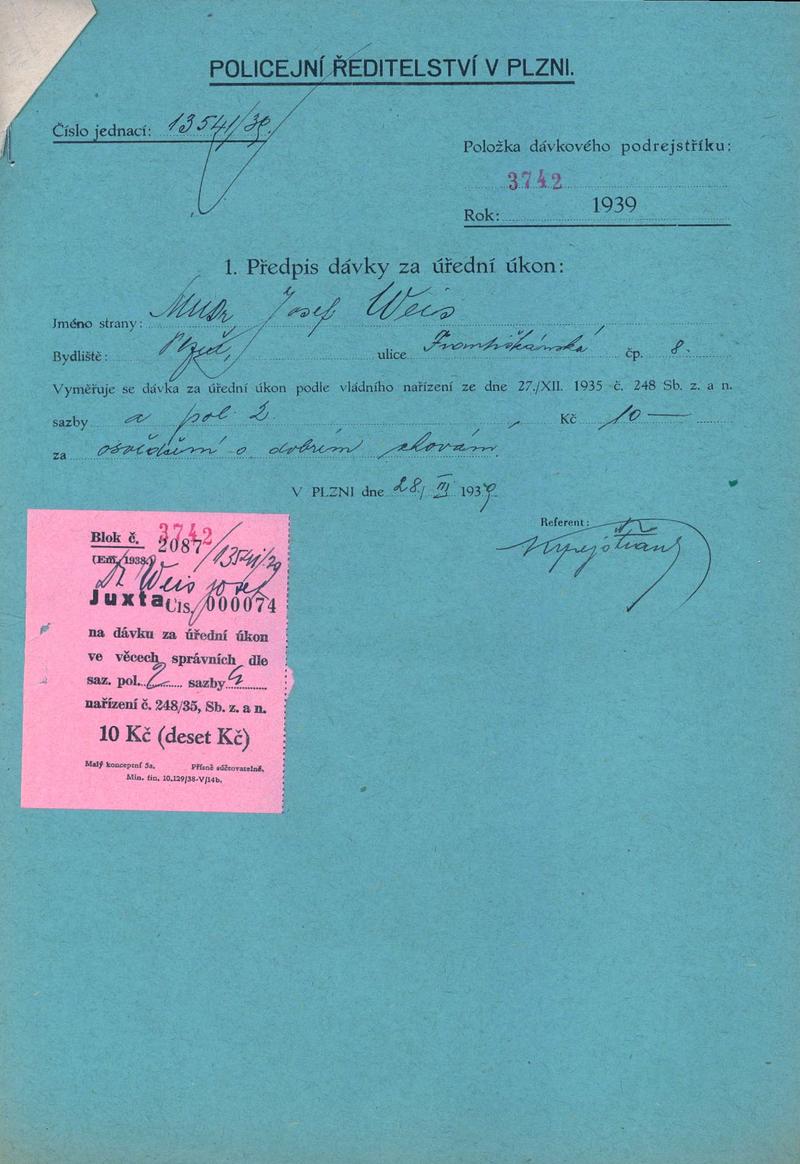 POLICEJNÍ ŘEDITELSTVÍ V PLZNI.
Číslo jednací: 13541/39.
Položka dávkového podrejstříku:
3742
Rok: 1939
1. Předpis dávky za úřední úkon:
Jméno strany: MUDr Josef Weis
Bydliště: Plzeň, ulice Františkánská čp. 8.
Vyměřuje se dávka za úřední úkon podle vládního nařízení ze dne 27./XII. 1935 č. 248 Sb. z. a n.
sazby a pol 2, Kč 10—
za osvědčení o dobrém chování.
V PLZNI dne 28/III 1939
Referent:
Blok č. 3742
2087 /13541/39
(Em. 1938.)
Dr Weis Josef
Juxta Čís. 000074
na dávku za úřední úkon
ve věcech správních dle
saz. pol. 2 sazby a
nařízení č. 248/35, Sb. z. a n.
10 Kč (deset Kč)
Malý konceptní 5a. Přísně súčtovatelné.
Min. fin. 10.129/38-V/14b.